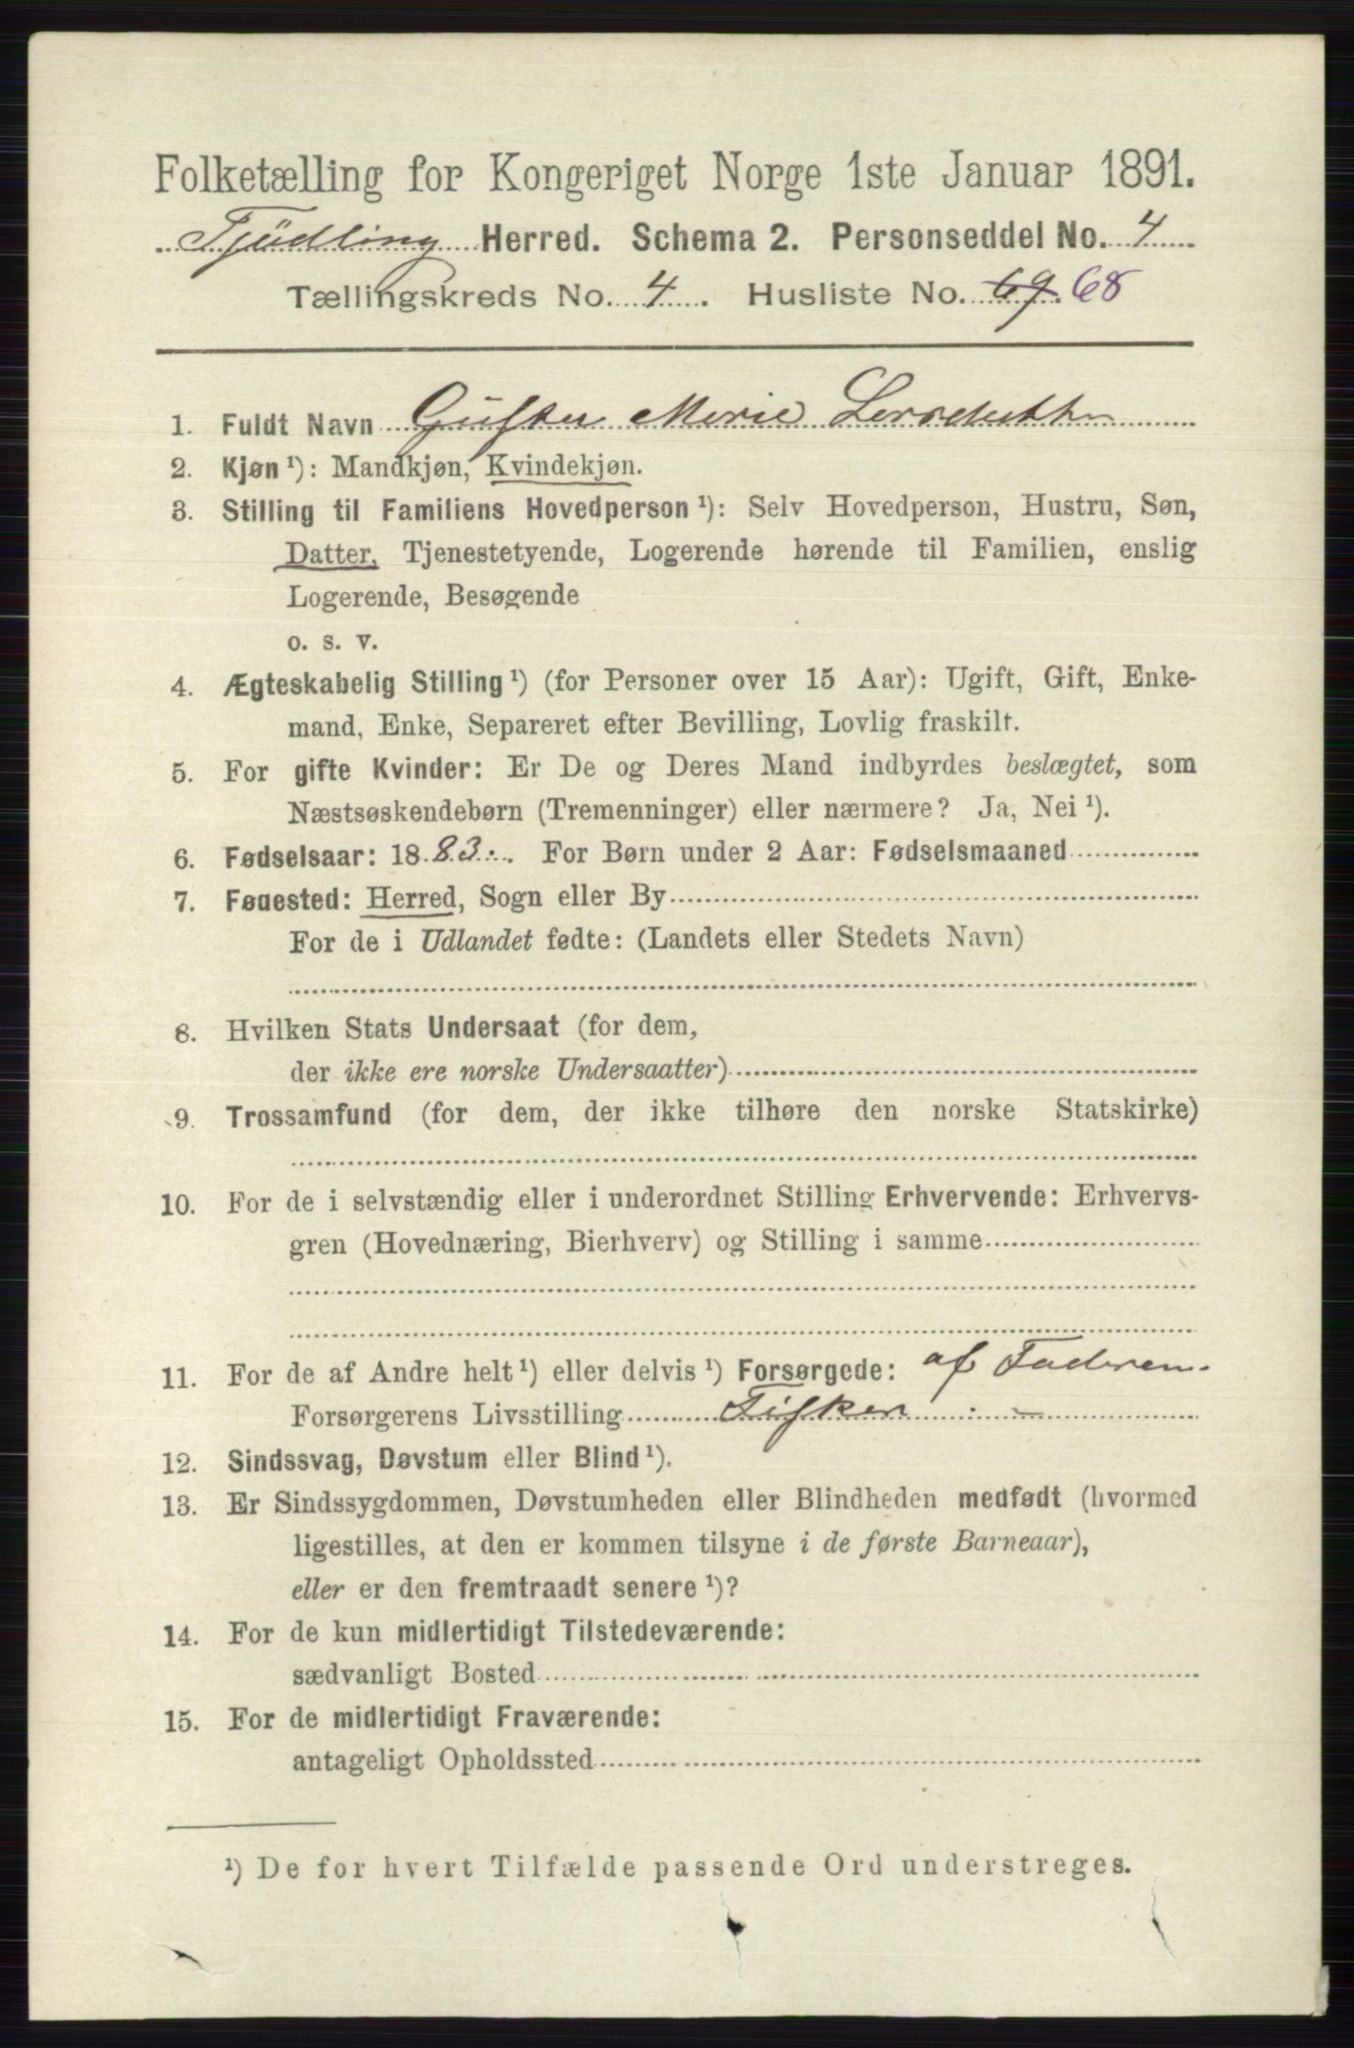 Folketælling for Kongeriget Norge 1ste Januar 1891.
Tjüdling Herred. Schema 2. Personseddel No. 4
Tællingskreds No. 4. Husliste No. 69. 68
1. Fuldt Navn Marie
2. Kjøn ¹): Mandkjøn, Kvindekjøn.
3. Stilling til Familiens Hovedperson ¹): Selv Hovedperson, Hustru, Søn,
Datter, Tjenestetyende, Logerende hørende til Familien, enslig
Logerende, Besøgende
o. s. v.
4. Ægteskabelig Stilling ¹) (for Personer over 15 Aar): Ugift, Gift, Enke-
mand, Enke, Separeret efter Bevilling, Lovlig fraskilt.
5. For gifte Kvinder: Er De og Deres Mand indbyrdes beslægtet, som
Næstsøskendebørn (Tremenninger) eller nærmere? Ja, Nei ¹).
6. Fødselsaar: 1883. For Børn under 2 Aar: Fødselsmaaned
7. Fødested: Herred, Sogn eller By
For de i Udlandet fødte: (Landets eller Stedets Navn)
8. Hvilken Stats Undersaat (for dem,
der ikke ere norske Undersaatter)
9. Trossamfund (for dem, der ikke tilhøre den norske Statskirke)
10. For de i selvstændig eller i underordnet Stilling Erhvervende: Erhvervs-
gren (Hovednæring, Bierhverv) og Stilling i samme
11. For de af Andre helt ¹) eller delvis ¹) Forsørgede: af Faderen.
Forsørgerens Livsstilling Fisker
12. Sindssvag, Døvstum eller Blind ¹).
13. Er Sindssygdommen, Døvstumheden eller Blindheden medfødt (hvormed
ligestilles, at den er kommen tilsyne i de første Barneaar),
eller er den fremtraadt senere ¹)?
14. For de kun midlertidigt Tilstedeværende:
sædvanligt Bosted
15. For de midlertidigt Fraværende:
antageligt Opholdssted
¹) De for hvert Tilfælde passende Ord understreges.